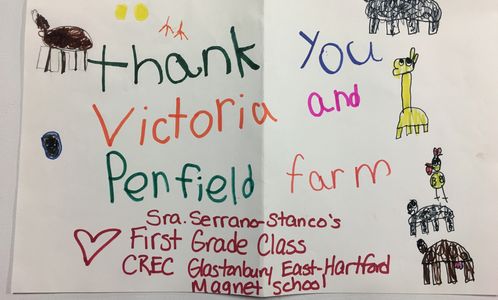 thank you
Victoria and
Penfield farm
Sra. Serrano-Stanco's
First Grade Class
CREC Glastonbury East-Hartford
Magnet School